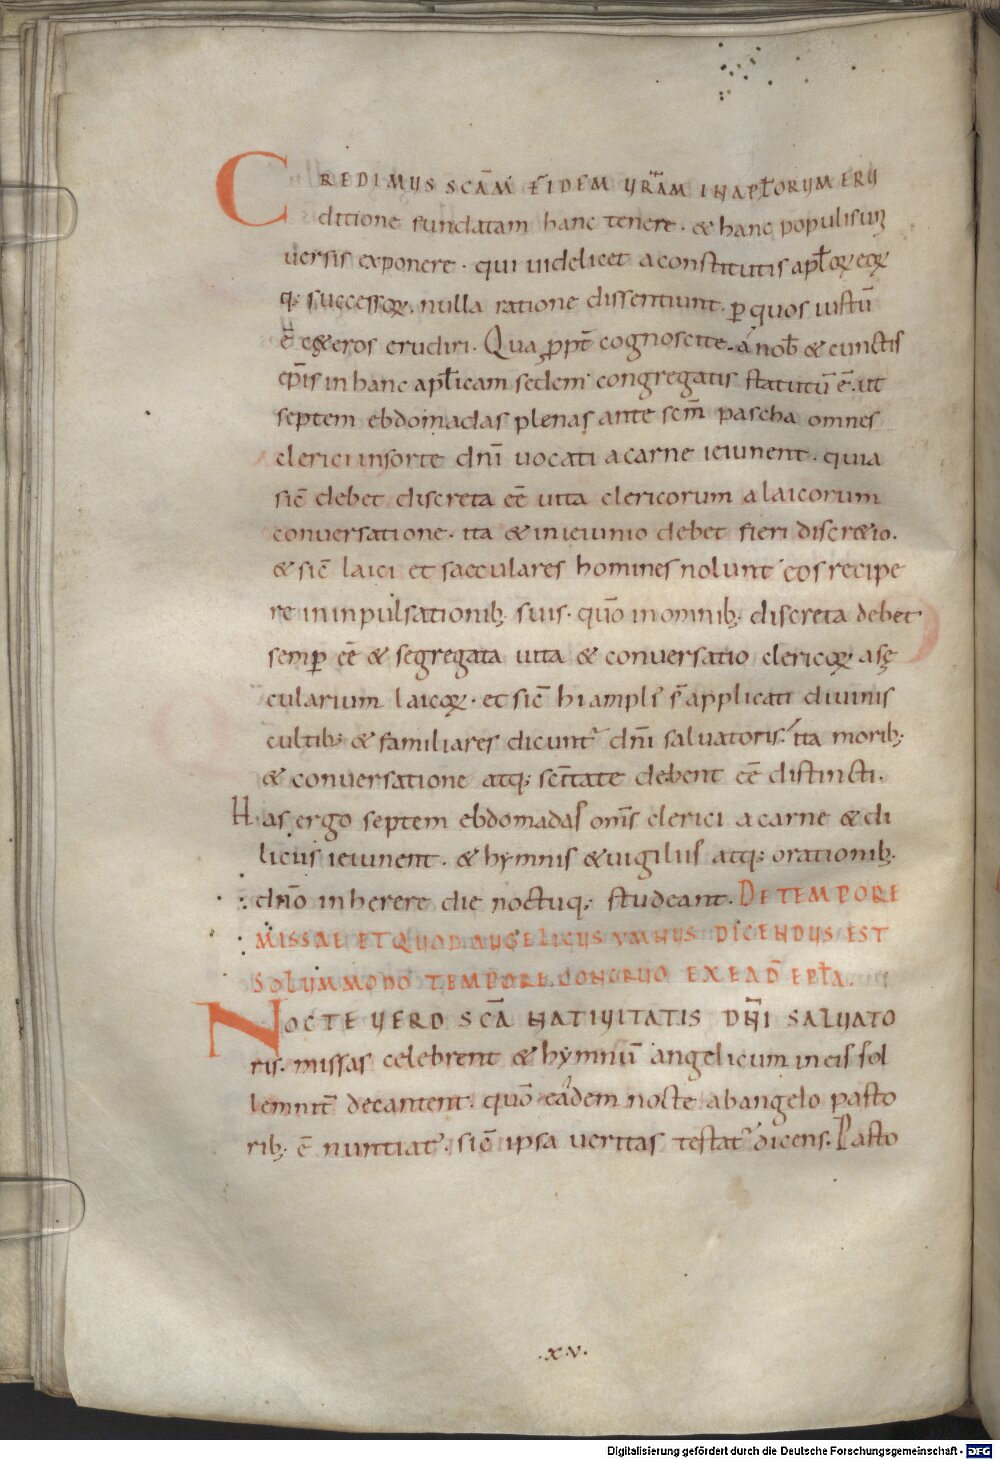 CREDIMUS SCĀM FIDEM VR̄AM IN APƚORUM ERU
ditione fundatam hanc tenere. & hanc populis un̄
uersis exponere. qui uidelicet a constitutis apƚoꝝ eoꝝ
q; successoꝝ. nulla ratione dissentiunt. ꝑ quos iustū
ē c&eros erudiri. Qua ꝓpt̄ cognoscite. a nob̄ & cunctis
ep̄is in hanc apƚicam sedem congregatis statutū ē. ut
septem ebdomadas plenas ante sc̄m pascha omnes
clerici in sorte dn̄i uocati a carne ieiunent. quia
sic̄ debet discreta eē uita clericorum a laicorum
conuersatione. ita & in ieiunio debet fieri discr&io.
& sic̄ laici et saeculares homines nolunt eos recipe
re in inpulsationib; suis. quō in omnib; discreta debet
semꝑ eē & segregata uita & conuersatio clericoꝝ a sę
cularium laicoꝝ. et sic̄ hi ampl' s̄ applicati diuinis
cultib; & familiares dicunt' dn̄i saluatoris. ita morib;
& conuersatione atq; sc̄itate debent eē distincti.
Has ergo septem ebdomadas om̄s clerici a carne & di
liciis ieiunent. & hymnis & uigiliis atq; orationib;
dn̄o inherere die noctuq; studeant. DE TEMPORE
MISSAE ET QUOD ANGELICUS YMNUS DICENDUS EST
SOLUMMODO TEMPORE CONGRUO EX EAD̄ EPƚA.
NOCTE VERO SCĀ NATIVITATIS DN̄I SALVATO
ris. missas celebrent & hymnū angelicum in eis sol
lemnit̄ decantent. quō eadem nocte ab angelo pasto
rib; ē nuntiat'. sic̄ ipsa ueritas testat' dicens. Pasto
.xv.
Digitalisierung gefördert durch die Deutsche Forschungsgemeinschaft - DFG